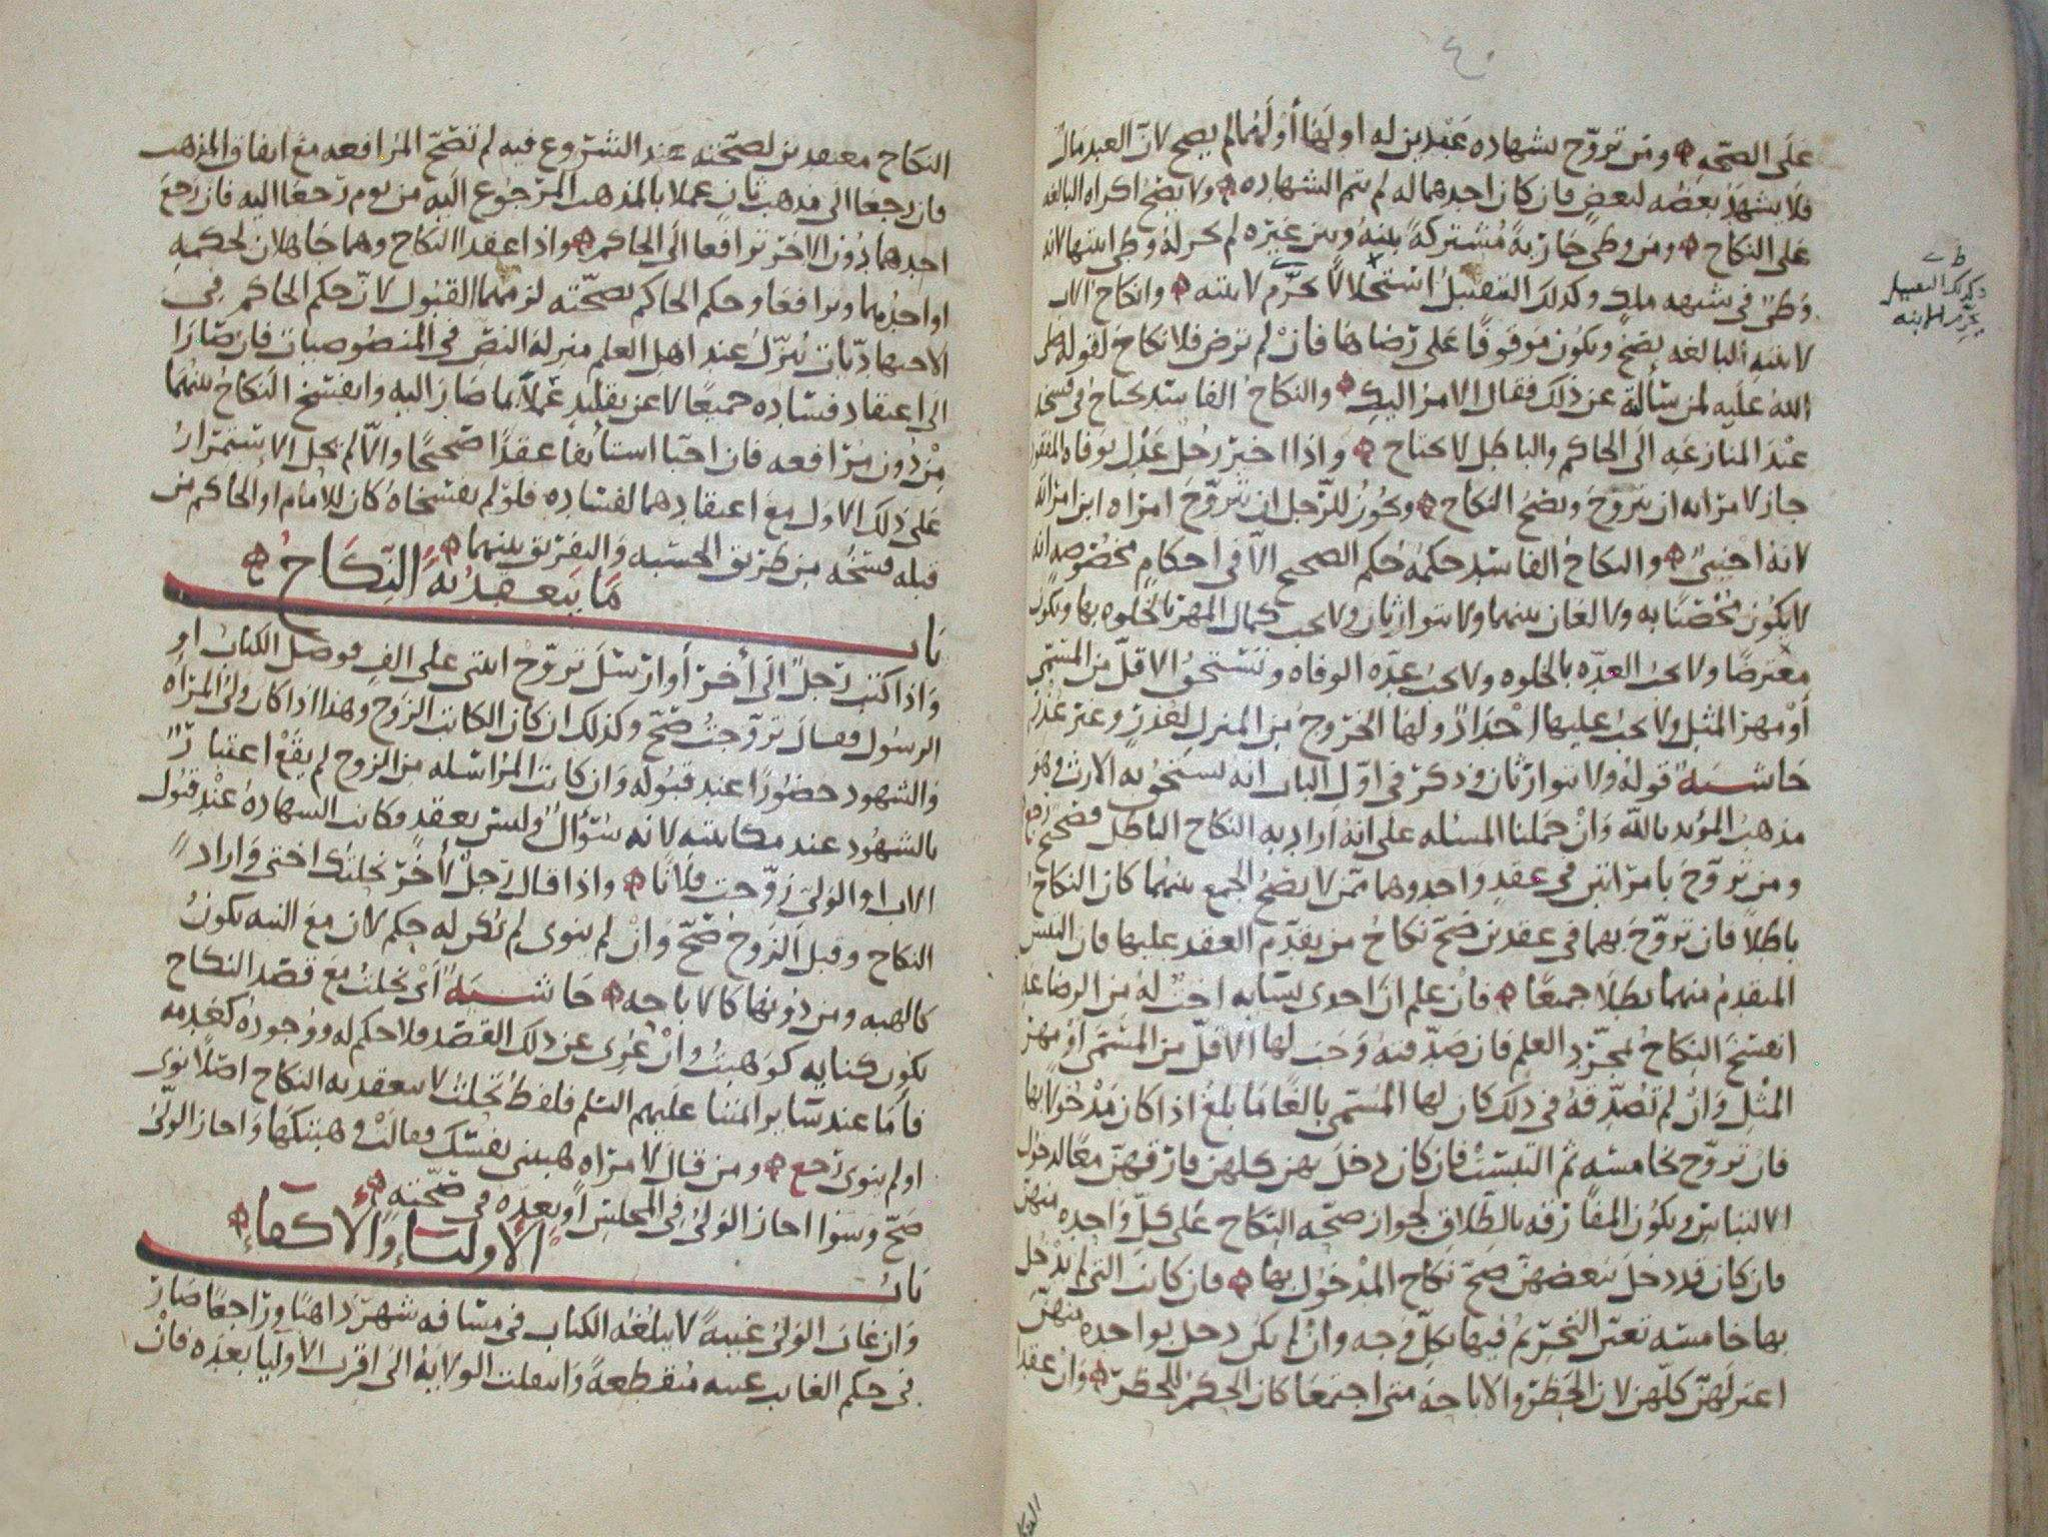 ٤٠
على الصحه ومن تزوج بشهاده عبدين له او لها أو لهما لم يصح لان العبد مال
فلا يشهد بعضه لبعض فان كان احدهما له لم تتم الشهاده ولا يصح اكراه البالغه
على النكاح ومن وطى جاريةً مُشتركةً بينه وبين غيره لم يحز له وطى ابنتها لانه
وطىٌ في شبهه ملك وكذلك التقبيل استحلالاً يحرّم لابنته وانكاح الاب
وكذلك التقبيل
يحرّم لابنه
لابنتهِ البالغه يصح ويكون موقوفًا على رضاها فانْ لم ترض فلا نكاح لقوله صلى
الله عليه لمن سألهُ عن ذلك فقال الامرُ اليكِ والنكاح الفاسد يحتاج في فسخه
عند المنازعه الى الحاكم والباطل لا يحتاج واذا اخبر رجل عدل بوفاه المفقود
جاز لامرأته ان تتزوج ويصح النكاح ويجوز للرجل ان يتزوج امراه ابن امراته
لانهُ اجنبيٌ والنكاح الفاسد حكمه حُكم الصحيح الا في احكامٍ مخصوصه انه
لا يكون مُحْصَنًا به ولا لعان بينهما ولا يتوارثان ولا يجب كمال المهر بالخلوه بها ويكون
معترضًا ولا يجبُ العدّه بالخلوه ولا يجب عدّه الوفاه وتستحق الاقلّ من المسمى
أوْ مهر المثل ولا يجب عليها احْدادٌ ولها الخروجُ من المنزل لعذرٍ وغير عذر
حاشيه قوله ولا يتوارثان وذكر في اوّل الباب انه يستحق به الارث وهو
مذهبُ المؤيد بالله وانْ حملنا المسله على انهُ اراد به النكاح الباطل فصحيح
ومن تزوّج بامرأتين في عقدٍ واحد وهما ممّن لا يصحّ الجمع بينهما كان النكاحُ
باطلاً فان تزوّج بهما في عقدين صحّ نكاحُ من تقدّم العقد عليها فان التبس
المتقدم منهما بطلا جميعًا فانْ علم انّ احدى نسايه اختٌ له من الرضاعه
انفسخ النكاحُ بمجرّد العلم فان صدّقتهُ وَجَبَ لها الاقلّ من المسمّى أوْ مهر
المثْل وانْ لم تُصدّقهُ في ذلك كان لها المُسمّى بالغًا ما بلغ اذا كان مدْخولًا بها
فان تزوّج بخامسه ثم التبسَتْ فان كان دخل بهن كلهن فارقهنّ معًا لدخول
الالتباس ويكون المفارقه بالطلاق لجواز صحّه النكاح على كلّ واحده منهنّ
فان كان قد دخل ببعضهنّ صحّ نكاح المدْخول بها فان كانت التي لم يدْخل
بها خامسه تعيّن التحريمُ فيها بكلّ وجه وانْ لم يكن دخل بواحده منهنّ
اعتزلهنّ كلّهن لان الحظر والاباحه متى اجتمعا كان الحكمُ للحظر وانْ عقدا
النكاح معتقدين لصحّته عند الشروع فيه لم تصحّ المرافعه مع اتفاق المذهب
فان رجعا الى مذهب ثانٍ عملا بالمذهب المرجُوع اليه من يوم رَجعَا اليه فان رجع
احدهما دُون الاخر ترافعا الى الحاكم واذا عقد النكاح وهما جاهلان لحكمه
او احدُهما وترافعا وحكم الحاكم بصحّته لزمهما القبول لانّ حكم الحاكم في
الاجتهاديّات يُنزّلُ عند اهل العلم منزلهَ النصّ في المنصُوصيات فان صَارَا
الى اعتقاد فسَاده جميعًا لا عن تقليد عملا بما صَارَ اليه وانفسَخ النكاحُ بينهُما
مِنْ دُون مُرَافعه فان احبّا استأنفا عقدًا صحيحًا والّا لم يحل الاستمرارُ
على ذلك الاول مع اعتقادهما لفسَاده فلوْ لم يفسَخاهُ كان للامام او الحاكم من
قبله فسْخُه من طريق الحسْبه والتفريق بينهما
باب ما ينعقد به النِّكَاح
واذا كتب رجلٌ الى أخرَ أو ارْسَل تزوّجْ ابنتي على الفٍ فوصَل الكتابُ او
الرسول فقال تزوّجتُ صحّ وكذلك ان كان الكاتب الزوج وهذا اذا كان ولىُّ المرأه
والشهود حضُورًا عند قبُوله وان كانت المراسله من الزوج لم يقعْ اعتبارٌ
بالشهُود عند مكاتبته لانه سُؤالٌ وليس بعقدٍ فكانت الشهادهُ عنْد قبُول
الاب او الولىّ زوّجت فلانًا واذا قال رجلٌ لأخَرَ نحلتك اختى وَاراد
النكاح وقبل الزوج صحّ وانْ لم ينوى لم يكن له حكم لان مع النيه يكونُ
كالهبه ومن دُونها كالاباحه حاشيه أىْ نحلتُ مع قصْد النكاح
يكون كنايه كوَهبتُ وانْ عُرِى عن ذلك القصْد فلا حكم له ووُجودهُ كعَدمه
فأما عند سَاير ائمتنا عليهم السّلم فلفظُ نحلتُ لا ينعقد به النكاح اصْلًا نوى
او لم ينوى رجع ومن قال لامرَأه هبينى نفسَك فقالتْ وهبتكها واجاز الولىّ
صحّ وسَوا اجاز الولىُّ في المجلس أو بعدَه في صحّته
باب الاوليَاء والأكفاء
وان غابَ الولىُّ غيبهً لا يبلغُه الكتاب في مسَافه شهرٍ ذاهبًا ورَاجعًا صَارَ
في حكم الغايب غيبه مُنقطعهً وانتقلت الولايهُ الى اقرب الأوليا بعدَه فانْ